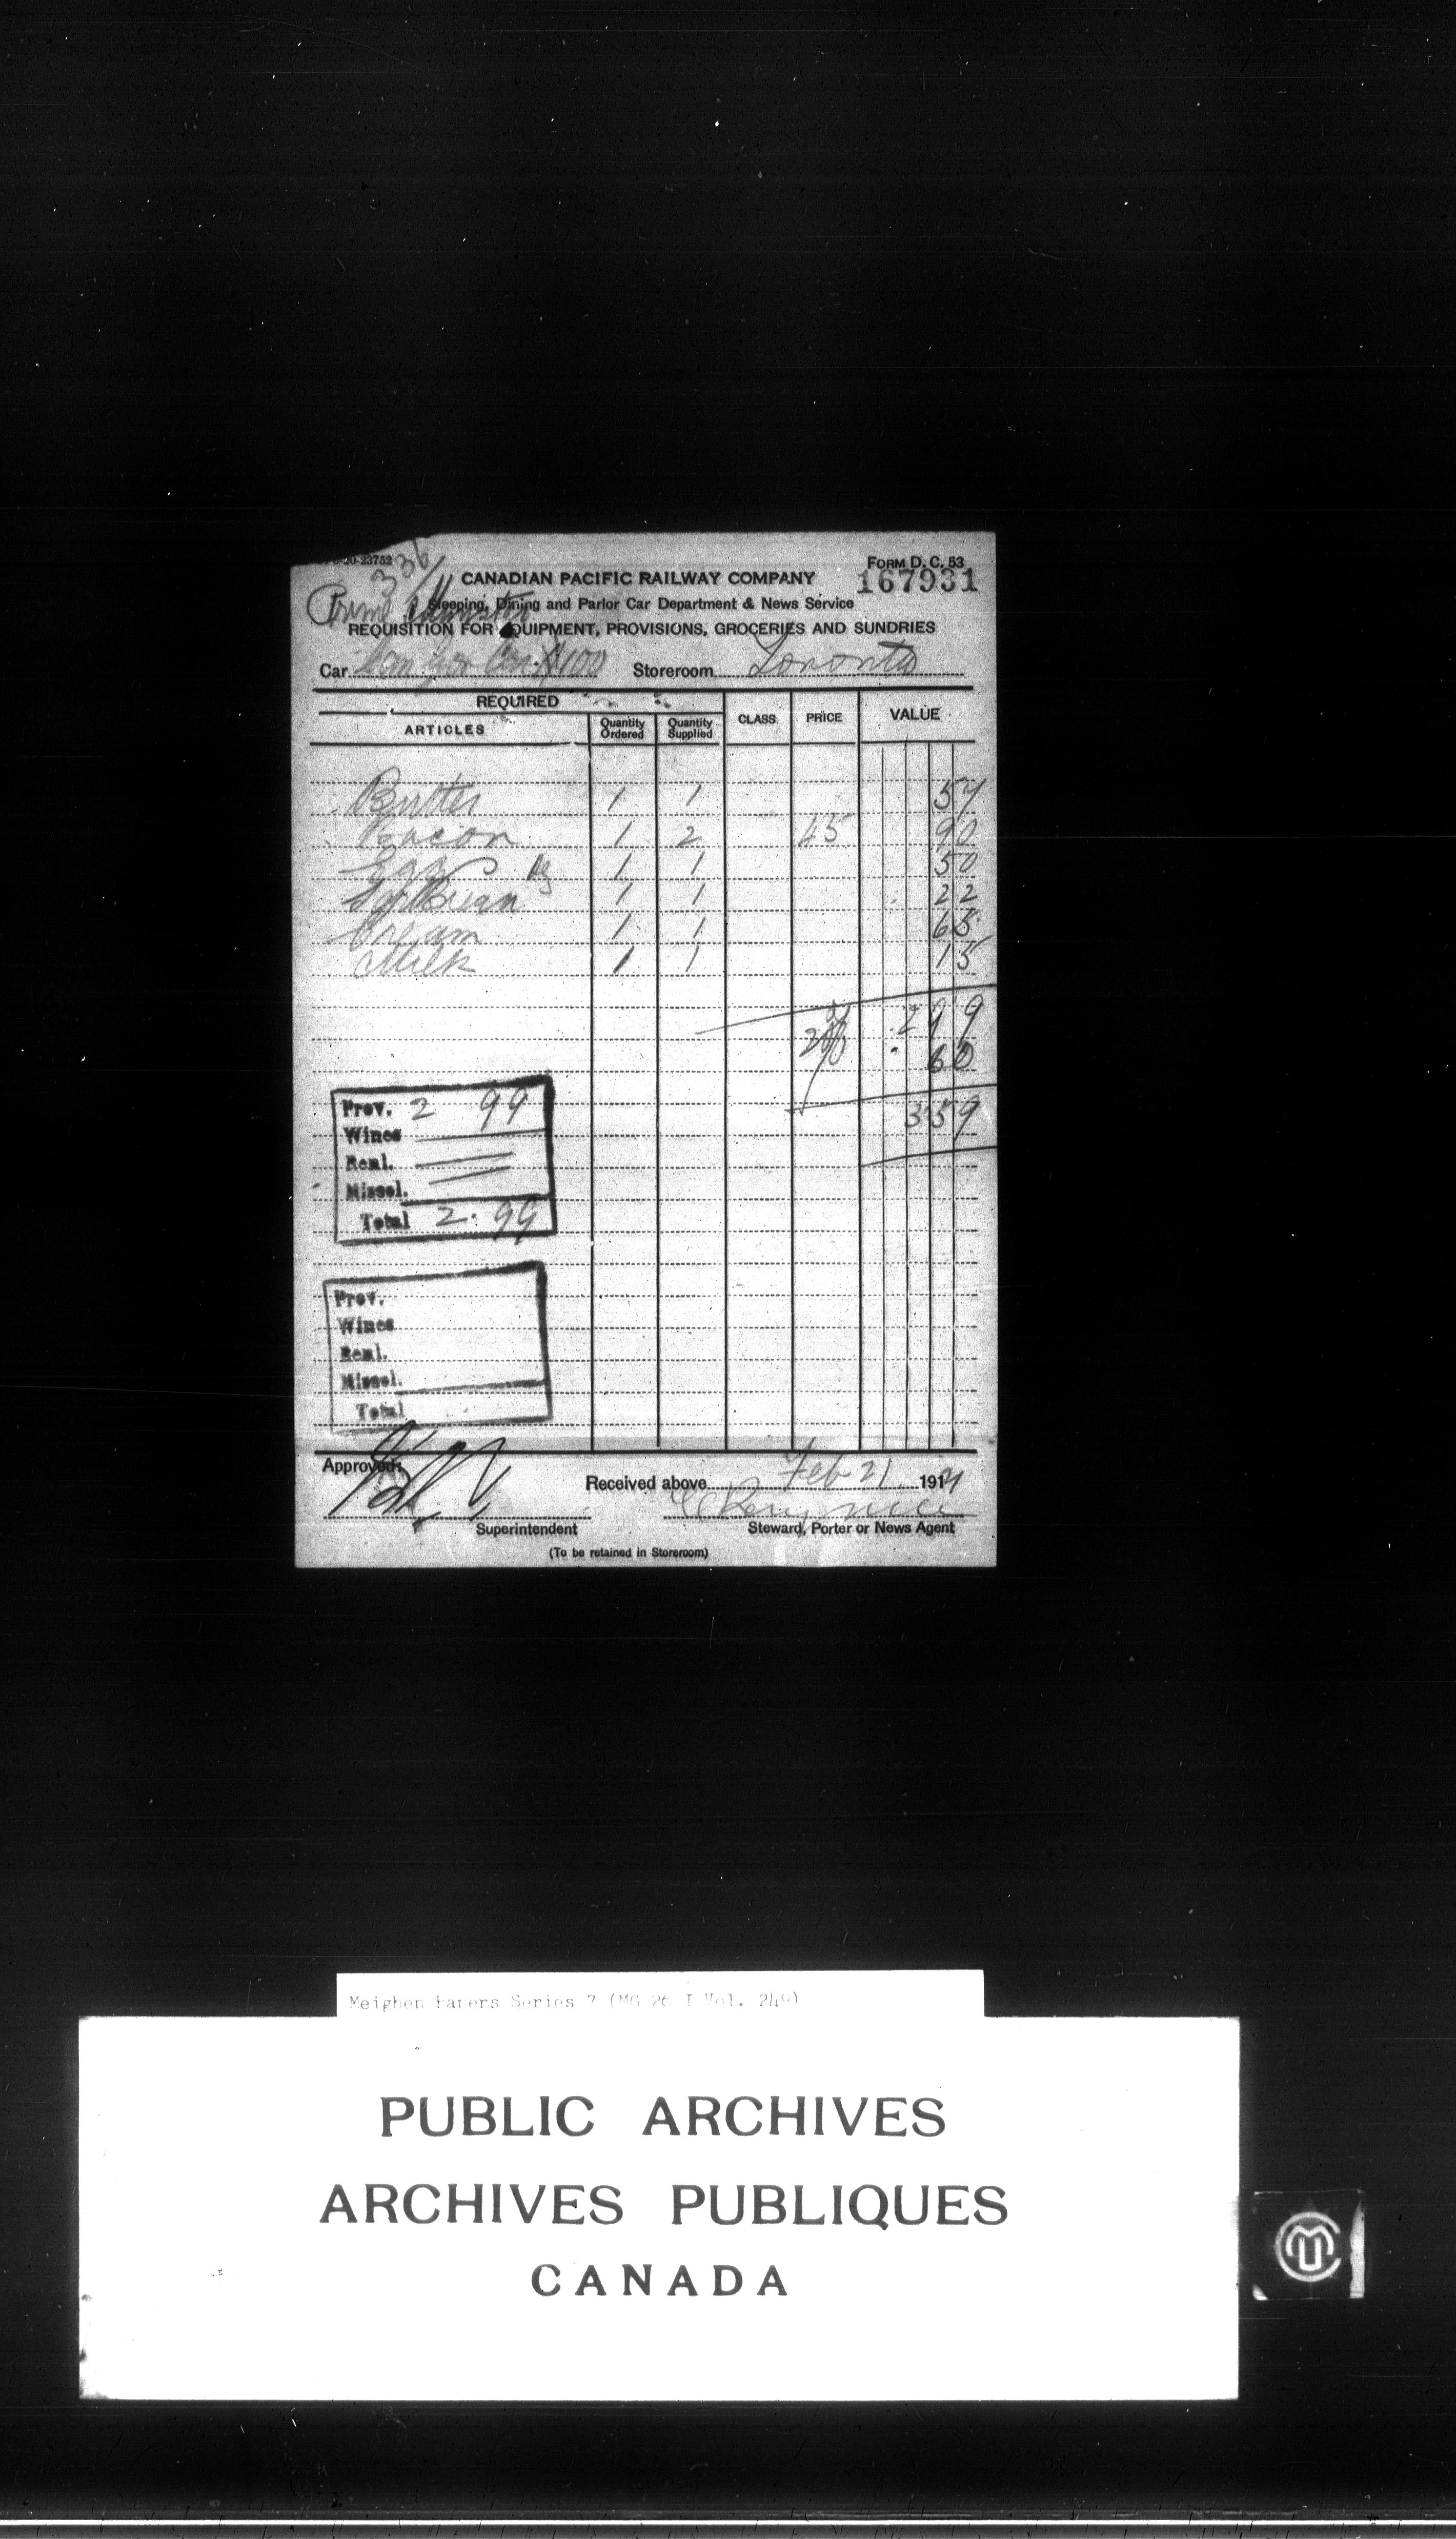 -20-23752
336
FORM D. C. 53
167931
CANADIAN PACIFIC RAILWAY COMPANY
Prime Minister
Sleeping, Dining and Parlor Car Department & News Service
REQUISITION FOR EQUIPMENT, PROVISIONS, GROCERIES AND SUNDRIES
Car 100 Storeroom Toronto
REQUIRED CLASS PRICE VALUE
ARTICLES Quantity Ordered Quantity Supplied
Butter 1 1 57
Bacon 1 2 45 90
Eggs 1 1 50
1 1 22
Cream 1 1 65
Milk 1 1 15
2 99
20% 60
3 59
Prov. 2 99
Wines
Reml.
Missel.
Total 2.99
Prov.
Wines
Reml.
Missel.
Total
Approved:
Received above Feb 21 1921
Superintendent Steward, Porter or News Agent
(To be retained in Storeroom)
Meighen Papers Series 7 (MG 26 I Vol. 249)
PUBLIC ARCHIVES
ARCHIVES PUBLIQUES
CANADA